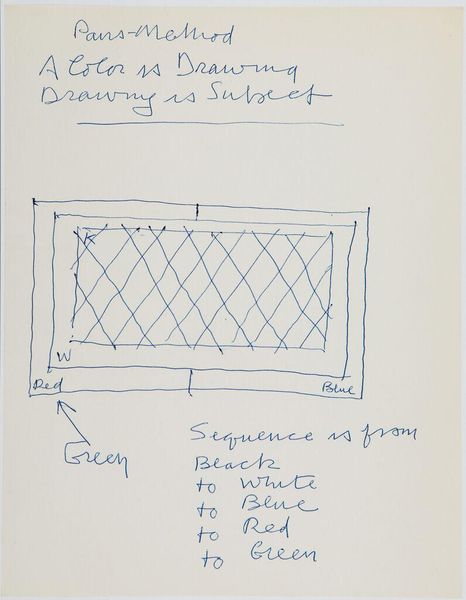 Pairs-Method
A Color is Drawing
Drawing is Subject
K
W
Red
Blue
Green
Sequence is from
Black
to White
to Blue
to Red
to Green